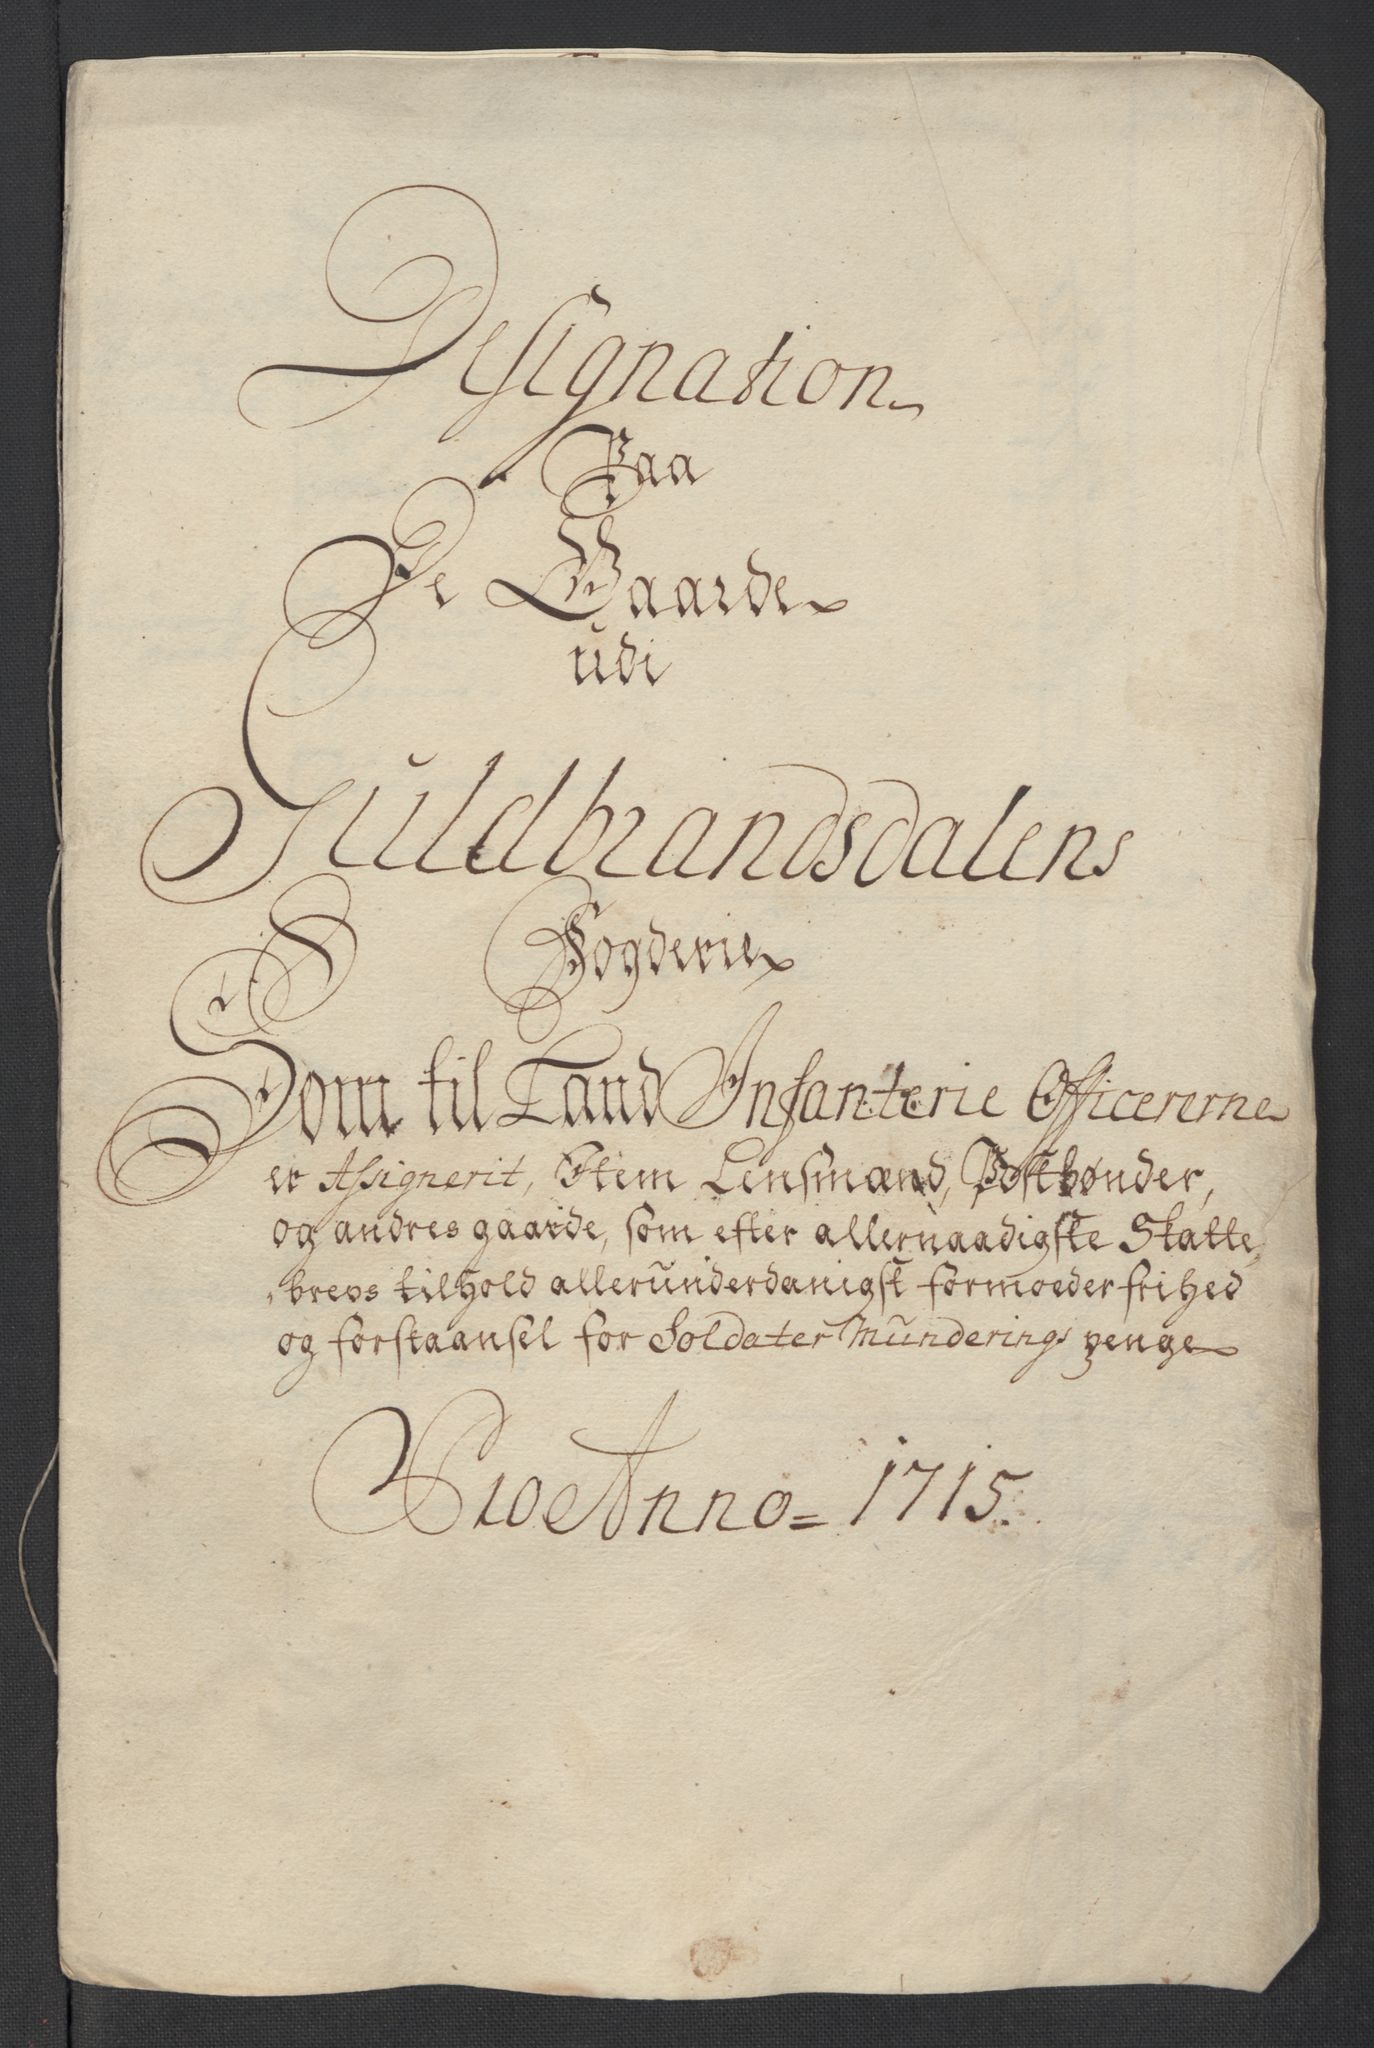 Designation
Paa
De Gaarde
udi
Guldbrandsdalens
Fogderie
Som til Land Infanterie Officererne
er Assignerit, Item Lensmænd, Postbønder,
og andres gaarde, som efter allernaadigste Skatte,
,brevs tilhold allerunderdanigst formoeder frihed
og forstaansel for Soldater Munderings penge
Pro Anno = 1715.